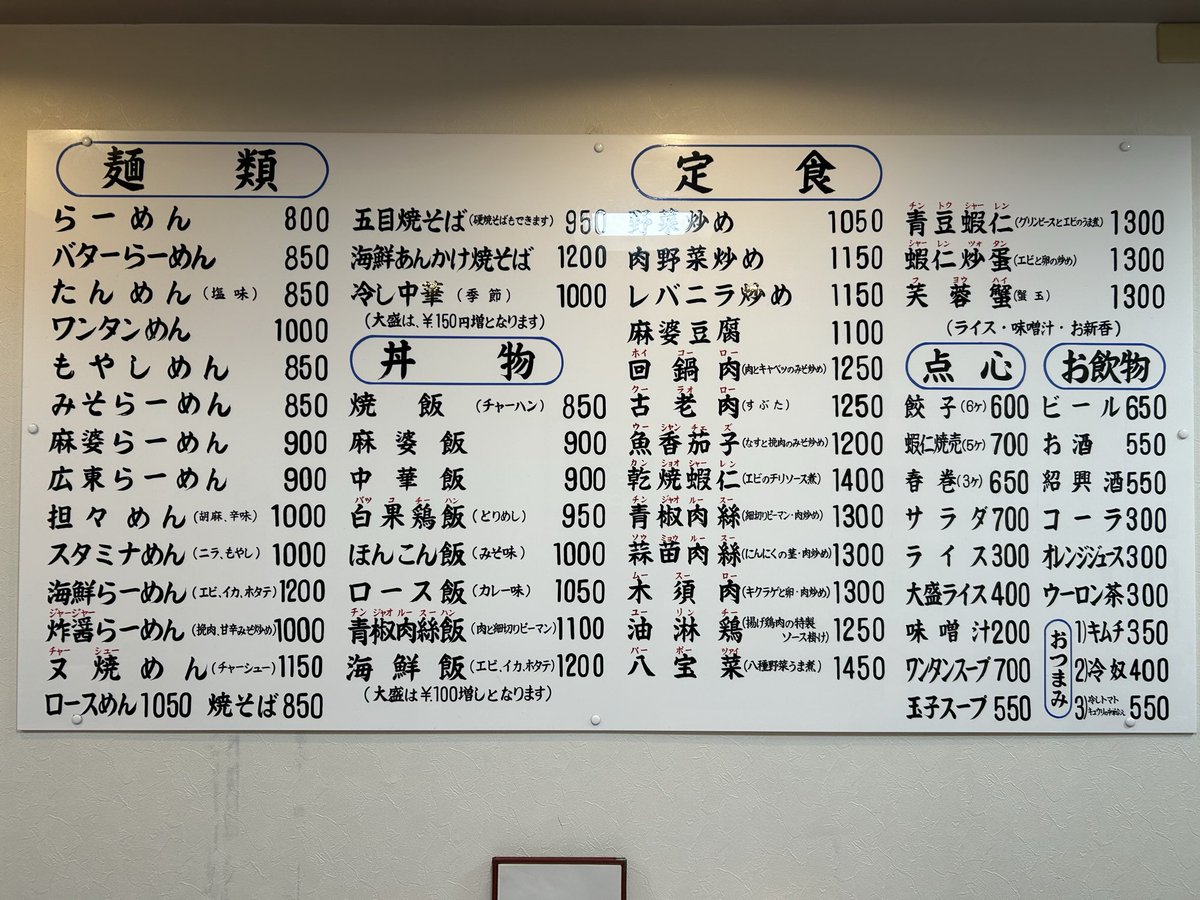 麺類
らーめん 800
バターらーめん 850
たんめん(塩味) 850
ワンタンめん 1000
もやしめん 850
みそらーめん 850
麻婆らーめん 900
広東らーめん 900
担々めん(胡麻、辛味) 1000
スタミナめん(ニラ、もやし) 1000
海鮮らーめん(エビ、イカ、ホタテ) 1200
ジャージャー
炸醤らーめん(挽肉、甘辛みそ炒め) 1000
チャー シュー
叉焼めん(チャーシュー) 1150
ロースめん 1050 焼そば 850
五目焼そば(硬焼そばもできます) 950
海鮮あんかけ焼そば 1200
冷し中華(季節) 1000
(大盛は、¥.150円増となります)
丼物
焼飯(チャーハン) 850
麻婆飯 900
中華飯 900
パッ コ チー ハン
白果鶏飯(とりめし) 950
ほんこん飯(みそ味) 1000
ロース飯(カレー味) 1050
チン ジャオ ルー スー ハン
青椒肉絲飯(肉と細切りピーマン) 1100
海鮮飯(エビ、イカ、ホタテ) 1200
(大盛は¥.100増しとなります)
定食
野菜炒め 1050
肉野菜炒め 1150
レバニラ炒め 1150
麻婆豆腐 1100
ホイ コー ロー
回鍋肉(肉とキャベツのみそ炒め) 1250
クー ラオ ロー
古老肉(すぶた) 1250
ウー シャン チェ ズ
魚香茄子(なすと挽肉のみそ炒め) 1200
カン ショオ シャー レン
乾焼蝦仁(エビのチリソース煮) 1400
チン ジャオ ルー スー
青椒肉絲(細切りピーマン・肉炒め) 1300
ソウ ミョウ ルー スー
蒜苗肉絲(にんにくの茎・肉炒め) 1300
ムー スー ロー
木須肉(キクラゲと卵・肉炒め) 1300
ユー リン チー
油淋鶏(揚げ鶏肉の特製ソース掛け) 1250
パー ポー ツァイ
八宝菜(八種野菜うま煮) 1450
チン トウ シャー レン
青豆蝦仁(グリンピースとエビのうま煮) 1300
シャー レン ツォ タン
蝦仁炒蛋(エビと卵の炒め) 1300
フ ヨウ ハイ
芙蓉蟹(蟹玉) 1300
(ライス・味噌汁・お新香)
点心
餃子(6ケ) 600
蝦仁焼売(5ケ) 700
春巻(3ケ) 650
サラダ 700
ライス 300
大盛ライス 400
味噌汁 200
ワンタンスープ 700
玉子スープ 550
お飲物
ビール 650
お酒 550
紹興酒 550
コーラ 300
オレンジジュース 300
ウーロン茶 300
おつまみ
1)キムチ 350
2)冷奴 400
3)冷しトマト 550